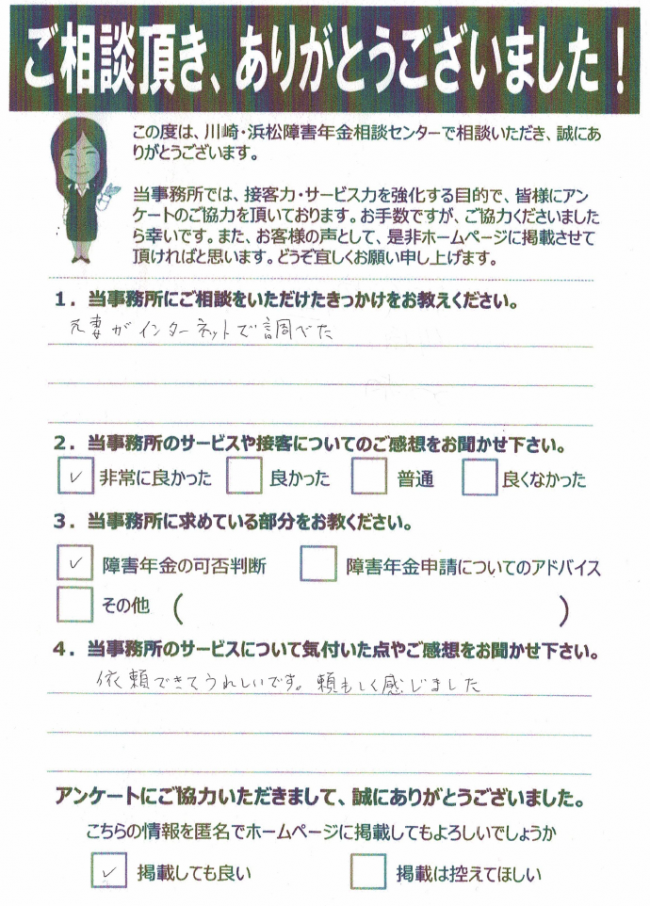 ご相談頂き、ありがとうございました！
この度は、川崎・浜松障害年金相談センターで相談いただき、誠にあ
りがとうございます。
当事務所では、接客力・サービス力を強化する目的で、皆様にアン
ケートのご協力を頂いております。お手数ですが、ご協力くださいました
ら幸いです。また、お客様の声として、是非ホームページに掲載させて
頂ければと思います。どうぞ宜しくお願い申し上げます。
1．当事務所にご相談をいただけたきっかけをお教えください。
元妻がインターネットで調べた
2．当事務所のサービスや接客についてのご感想をお聞かせ下さい。
✓ 非常に良かった 良かった 普通 良くなかった
3．当事務所に求めている部分をお教ください。
✓ 障害年金の可否判断 障害年金申請についてのアドバイス
その他 （ ）
4．当事務所のサービスについて気付いた点やご感想をお聞かせ下さい。
依頼できてうれしいです。頼もしく感じました
アンケートにご協力いただきまして、誠にありがとうございました。
こちらの情報を匿名でホームページに掲載してもよろしいでしょうか
✓ 掲載しても良い 掲載は控えてほしい